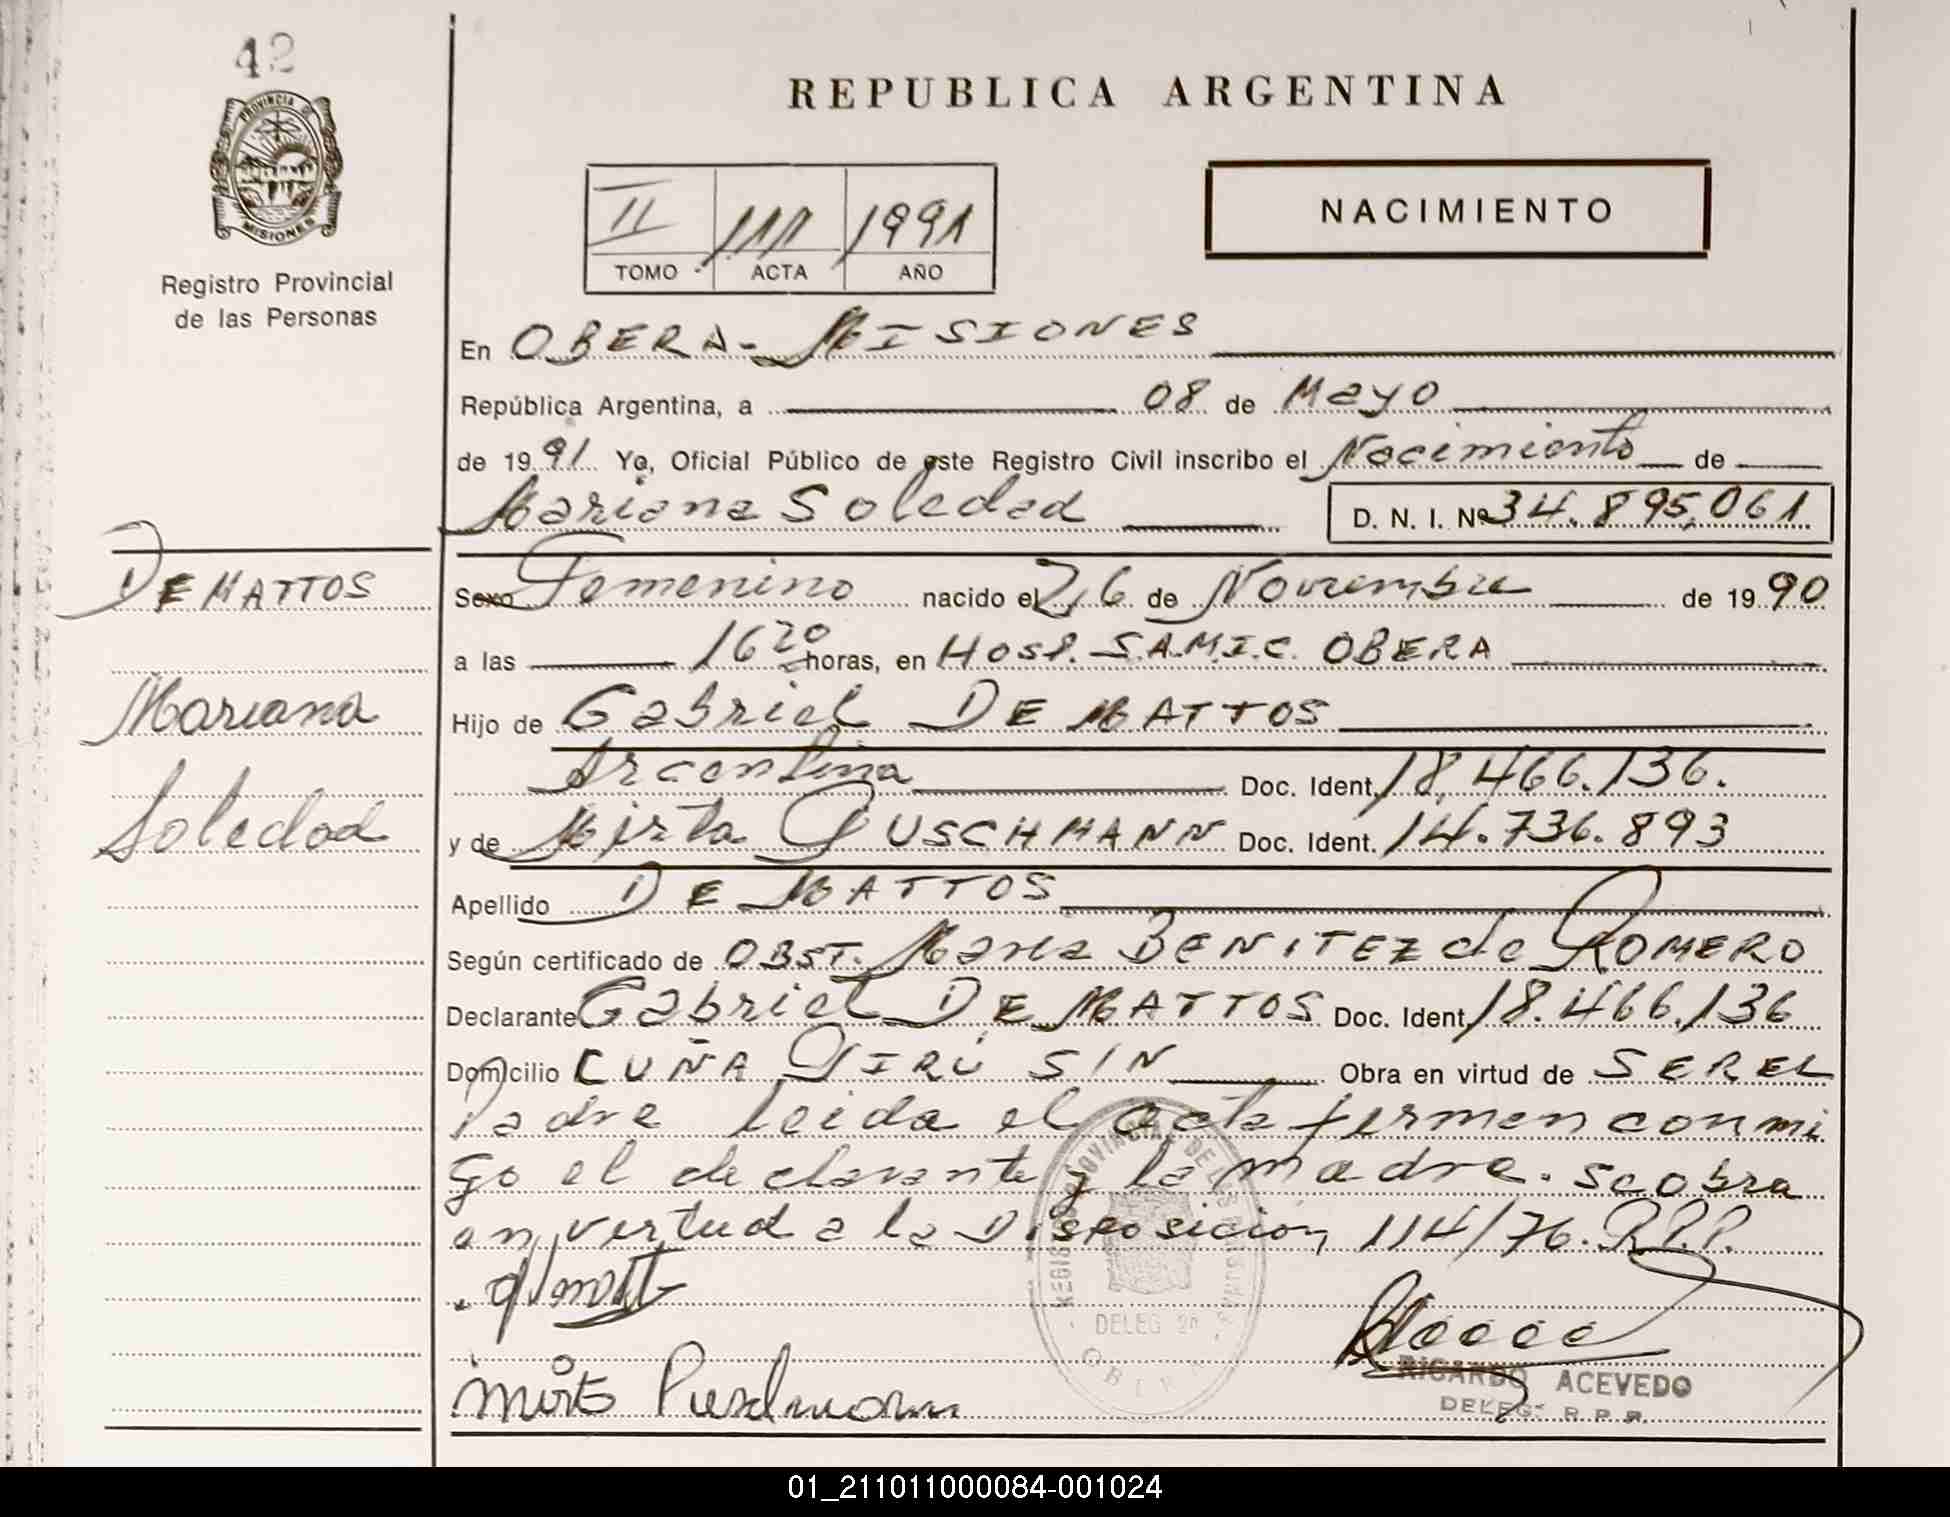 42
PROVINCIA DE
MISIONES
Registro Provincial
de las Personas
REPUBLICA ARGENTINA
II 111 1991
TOMO ACTA AÑO
NACIMIENTO
En OBERA - MISIONES
República Argentina, a 08 de Mayo
de 1991 Yo, Oficial Público de este Registro Civil inscribo el Nacimiento de
Mariana Soledad D. N. I. Nº 34.895,061
DE MATTOS
Mariana
Soledad
Sexo Femenino nacido el 26 de Noviembre de 1990
a las 16 20 horas, en HOSP. S.A.M.I.C. OBERA
Hijo de Gabriel DE MATTOS
Argentina Doc. Ident. 18.466.136.
y de Mirta PUSCHMANN Doc. Ident. 14.736.893
Apellido DE MATTOS
Según certificado de OBST. Maria BENITEZ de ROMERO
Declarante Gabriel DE MATTOS Doc. Ident. 18.466.136
Domicilio CUÑA PIRÚ S/N Obra en virtud de SER EL
Padre leida el acta firman conmi
go el declarante y la madre. Se obra
en virtud a la Disposición 114/76. R.P.P.
REGISTRO PROVINCIAL DE LAS PERSONAS
DELEG
OBERA
Mirta Puschmann
RICARDO ACEVEDO
DELEG. R.P.P.
01_211011000084-001024